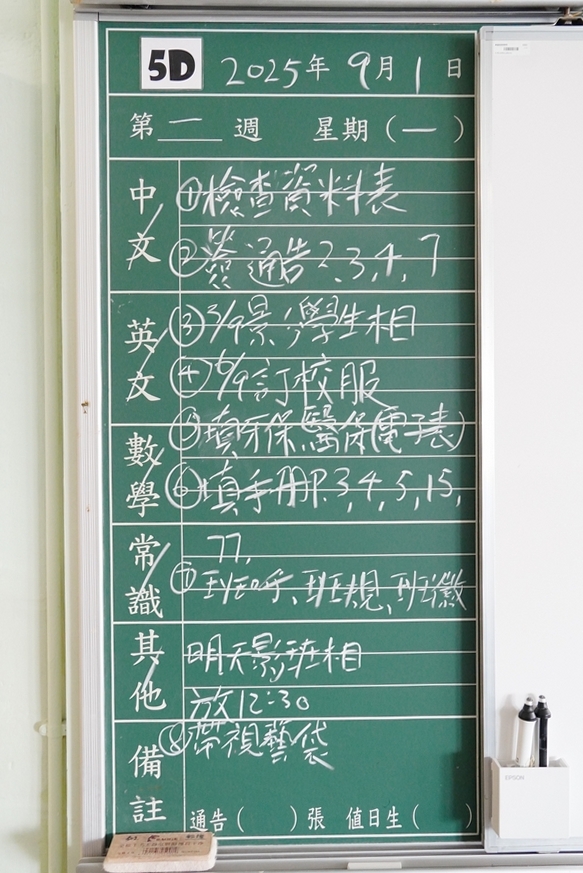 5D 2025年9月1日
第一週 星期(一)
中文
①檢查資料表
②簽通告2,3,4,7
英文
③3/9影學生相
④6/9訂校服
數學
⑤填牙保,醫保(電子表)
⑥填手冊P.3,4,5,15,
常識
77,
⑦班呼、班規、班徽
其他
明天影班相
放12:30
備註
⑧帶視藝袋
通告( )張 值日生( )
EPSON